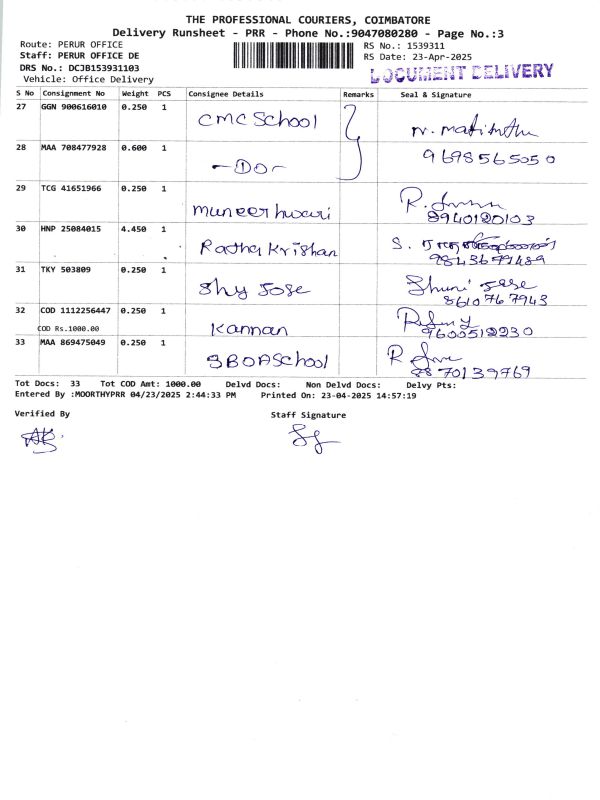 THE PROFESSIONAL COURIERS, COIMBATORE
Delivery Runsheet - PRR - Phone No.:9047080280 - Page No.:3
Route: PERUR OFFICE
RS No.: 1539311
Staff: PERUR OFFICE DE
RS Date: 23-Apr-2025
DRS No.: DCJB153931103
DOCUMENT DELIVERY
Vehicle: Office Delivery
S No Consignment No Weight PCS Consignee Details Remarks Seal & Signature
27 GGN 900616010 0.250 1 CMC School
28 MAA 708477928 0.600 1 -Do- 9698565050
29 TCG 41651966 0.250 1 Muneerhwari 8940120103
30 HNP 25084015 4.450 1 Ratha Krishan S.
31 TKY 503809 0.250 1 Shy Jose Jose 8610767943
32 COD 1112256447 0.250 1 Kannan 9600512230
COD Rs.1000.00
33 MAA 869475049 0.250 1 SBOA School R 8870139769
Tot Docs: 33 Tot COD Amt: 1000.00 Delvd Docs: Non Delvd Docs: Delvy Pts:
Entered By :MOORTHYPRR 04/23/2025 2:44:33 PM Printed On: 23-04-2025 14:57:19
Verified By Staff Signature